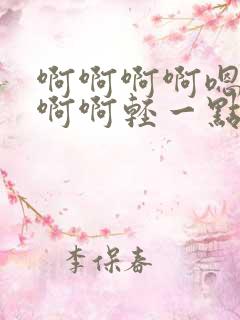 啊啊啊啊嗯
啊啊輕一點
李保春